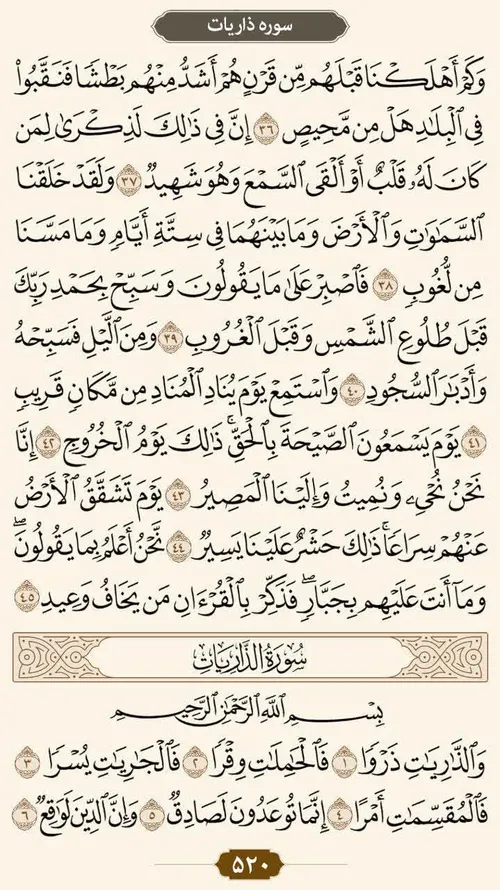 سوره ذاریات
وَكَمْ أَهْلَكْنَا قَبْلَهُم مِّن قَرْنٍ هُمْ أَشَدُّ مِنْهُم بَطْشًا فَنَقَّبُوا۟
فِى ٱلْبِلَٰدِ هَلْ مِن مَّحِيصٍ ٣٦ إِنَّ فِى ذَٰلِكَ لَذِكْرَىٰ لِمَن
كَانَ لَهُۥ قَلْبٌ أَوْ أَلْقَى ٱلسَّمْعَ وَهُوَ شَهِيدٌ ٣٧ وَلَقَدْ خَلَقْنَا
ٱلسَّمَٰوَٰتِ وَٱلْأَرْضَ وَمَا بَيْنَهُمَا فِى سِتَّةِ أَيَّامٍ وَمَا مَسَّنَا
مِن لُّغُوبٍ ٣٨ فَٱصْبِرْ عَلَىٰ مَا يَقُولُونَ وَسَبِّحْ بِحَمْدِ رَبِّكَ
قَبْلَ طُلُوعِ ٱلشَّمْسِ وَقَبْلَ ٱلْغُرُوبِ ٣٩ وَمِنَ ٱلَّيْلِ فَسَبِّحْهُ
وَأَدْبَٰرَ ٱلسُّجُودِ ٤٠ وَٱسْتَمِعْ يَوْمَ يُنَادِ ٱلْمُنَادِ مِن مَّكَانٍ قَرِيبٍ
٤١ يَوْمَ يَسْمَعُونَ ٱلصَّيْحَةَ بِٱلْحَقِّ ۚ ذَٰلِكَ يَوْمُ ٱلْخُرُوجِ ٤٢ إِنَّا
نَحْنُ نُحْىِۦ وَنُمِيتُ وَإِلَيْنَا ٱلْمَصِيرُ ٤٣ يَوْمَ تَشَقَّقُ ٱلْأَرْضُ
عَنْهُمْ سِرَاعًا ۚ ذَٰلِكَ حَشْرٌ عَلَيْنَا يَسِيرٌ ٤٤ نَّحْنُ أَعْلَمُ بِمَا يَقُولُونَ ۖ
وَمَآ أَنتَ عَلَيْهِم بِجَبَّارٍ ۖ فَذَكِّرْ بِٱلْقُرْءَانِ مَن يَخَافُ وَعِيدِ ٤٥
سُورَةُ الذَّارِيَاتِ
بِسْمِ ٱللَّهِ ٱلرَّحْمَٰنِ ٱلرَّحِيمِ
وَٱلذَّٰرِيَٰتِ ذَرْوًا ١ فَٱلْحَٰمِلَٰتِ وِقْرًا ٢ فَٱلْجَٰرِيَٰتِ يُسْرًا ٣
فَٱلْمُقَسِّمَٰتِ أَمْرًا ٤ إِنَّمَا تُوعَدُونَ لَصَادِقٌ ٥ وَإِنَّ ٱلدِّينَ لَوَٰقِعٌ ٦
۵۲۰